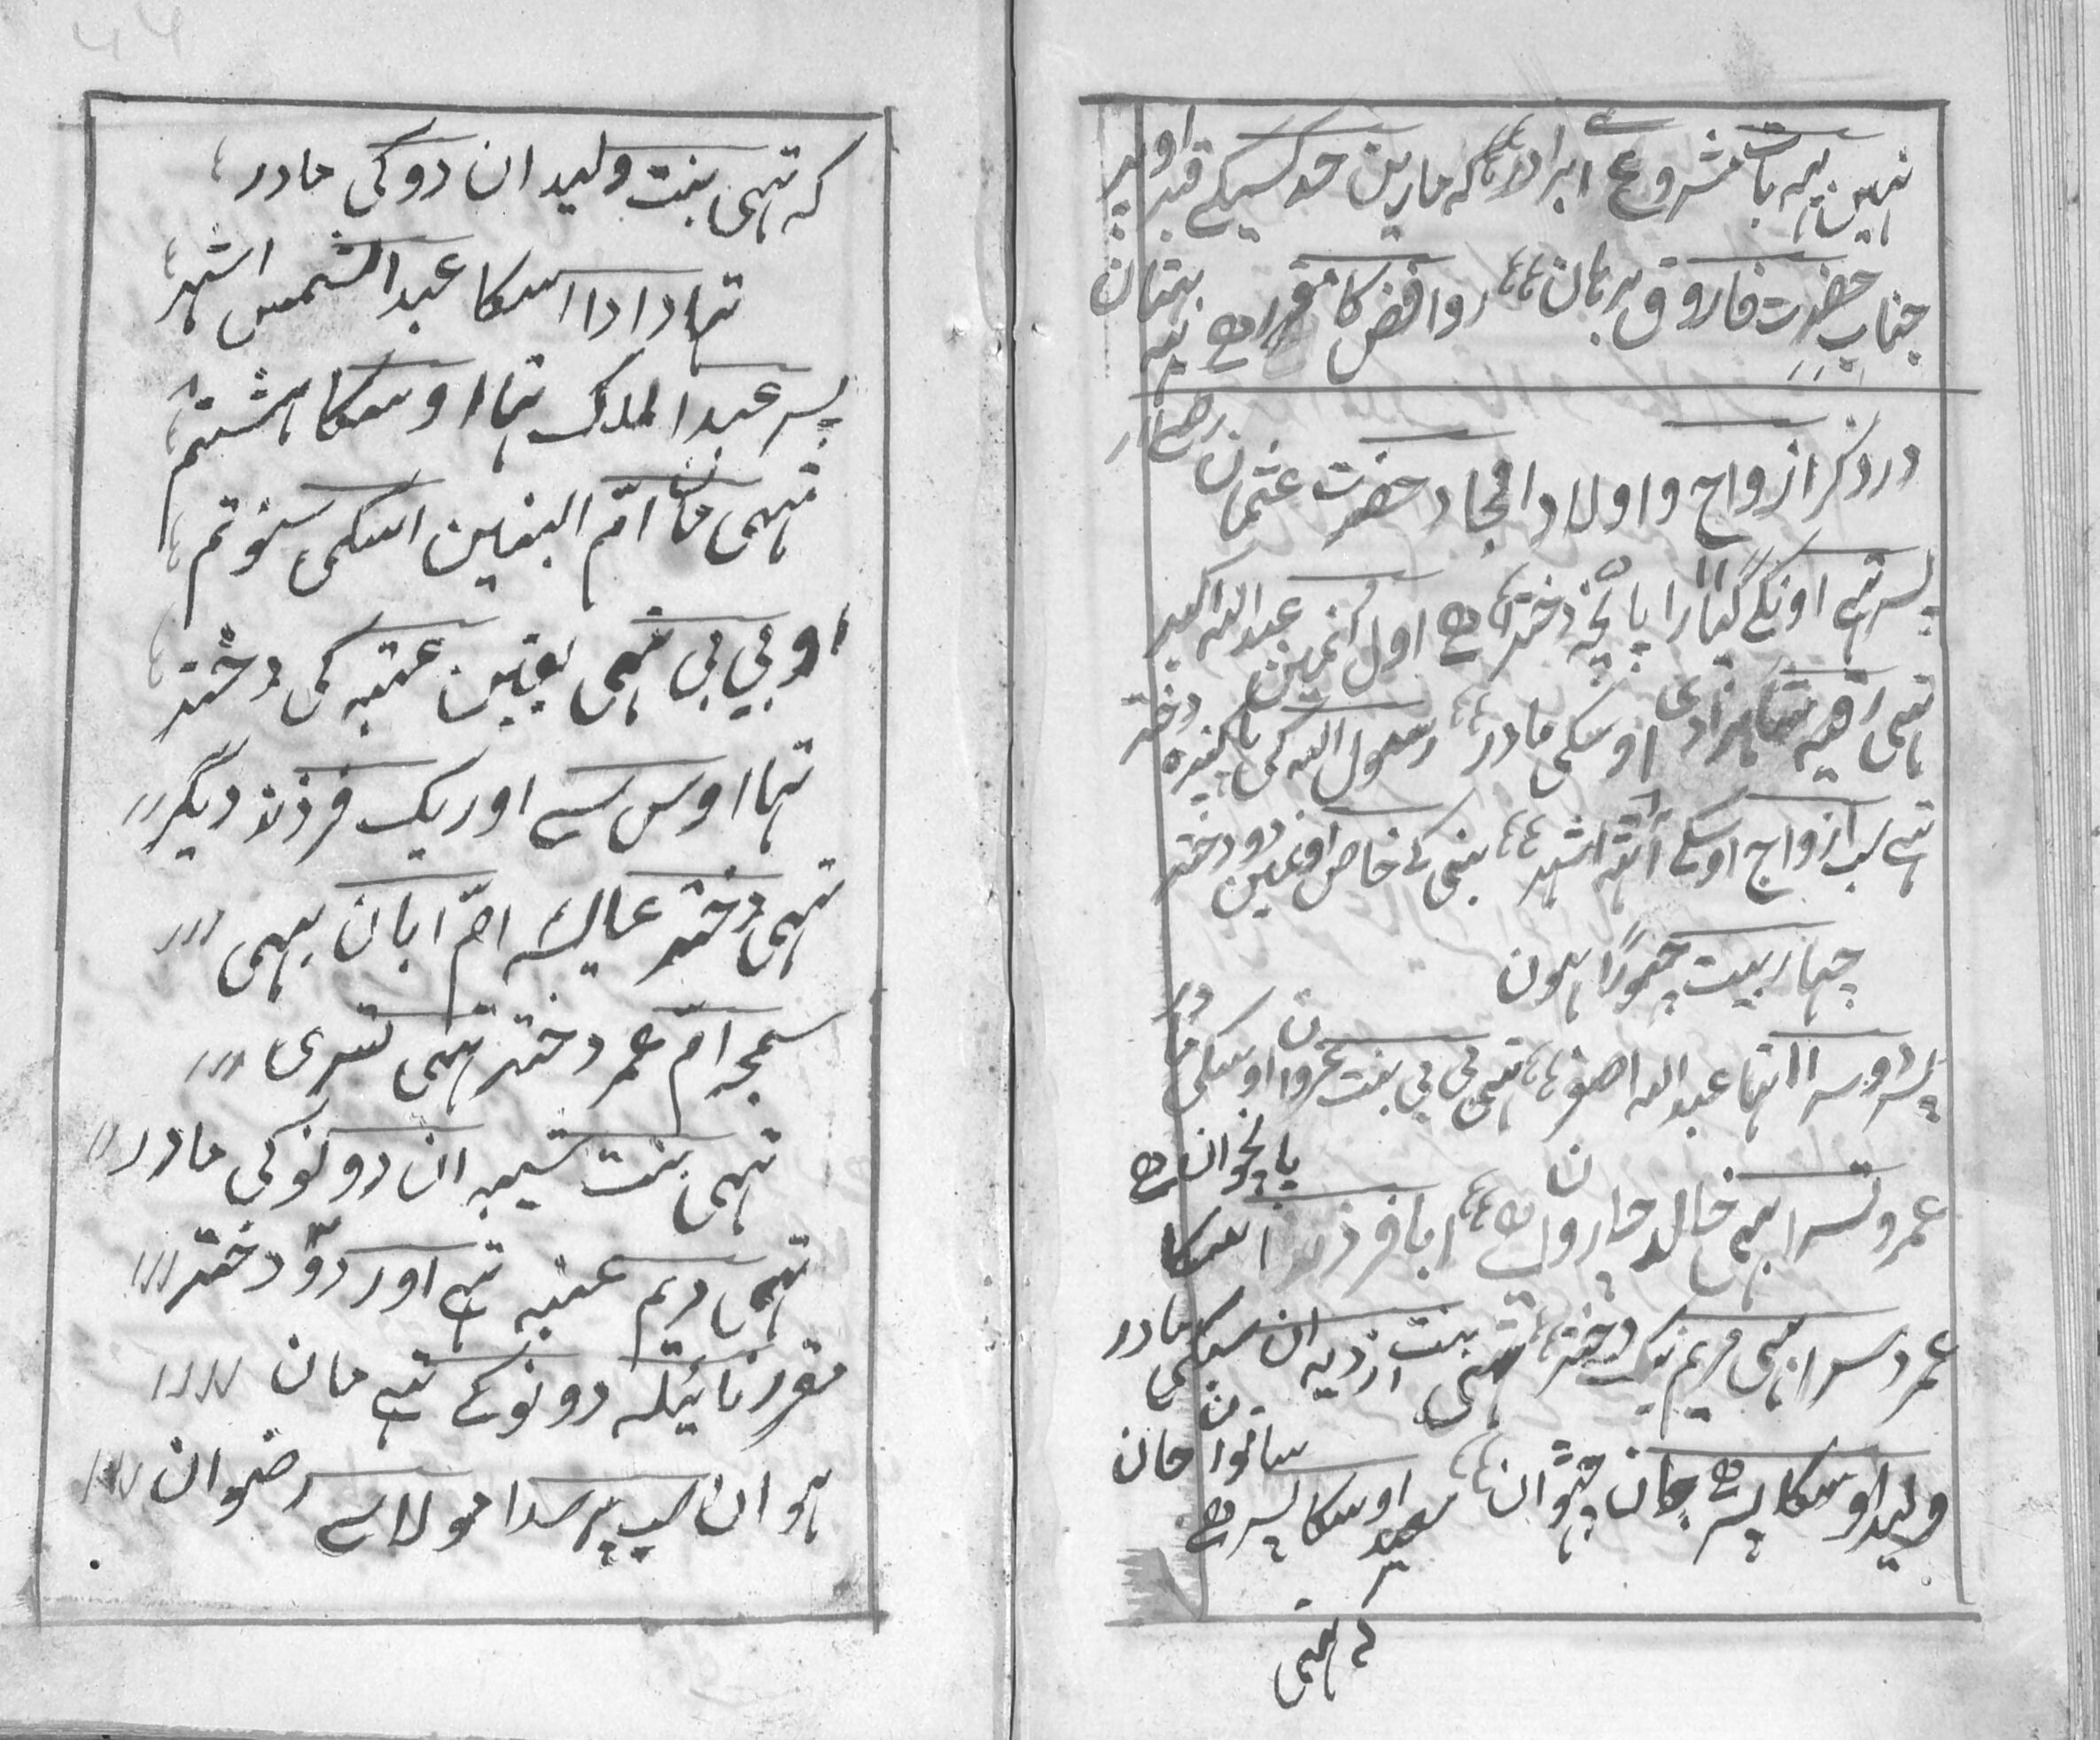 نہیں یہ بات مشروع اے ابرار کہ مارین حد کسیکے قبر اوپر
جناب حضرت فاروق پر ہان روافض کا مقرر ہے یہ بہتان
در ذکر ازواج و اولاد امجاد حضرت عثمان رضہ
پسر تہے اونکے گیارا ۱۱ پانچہ ۵ دختر ہے اول انمین عبد اللہ اکبر
تہی رقیہ شاہزادی اوسکی مادر رسول اللہ کی پاکیزہ دختر
تہے سب ازواج اوسکے آٹہ اشہر نبی کے خاص اونمین دو دختر
چہار بیت چہوڑا ہون
پسر دوسرا تہا عبد اللہ اصغر تہی بی بی بنت غزوان اوسکی مادر
عمرو تسرا ہی خالد چاروان ہے ابا فرزند اسکا پانچوان ہے
عمر دسرا ہی مریم نیک دختر تہی بنت ازدیہ ان سبکی مادر
ولید اوسکا پسر ہے جان چہٹوان سعید اوسکا پسر ہے ساتوان جان
کہ تہی
کہ تہی بنت ولید ان دو کی مادر
تہا دادا اسکا عبد الشمس اشہر
پسر عبد الملک تہا اوسکا ہشتم
تہی مان امّ البنین اسکی سنو تم
او بی بی تہی یقین عتبہ کی دختر
تہا اوس سے اور یک فرزند دیگر
تہی دختر عایشہ امّ ابان بہی
سمجہ امّ عمر دختر تہی تسری
تہی بنت شیبہ ان دونو کی مادر
تہی مریم عنبہ تہے اور دو دختر
مقرر نائیلہ دونو کے تہے مان
ہو ان سب پر صدا مولا سے رضوان